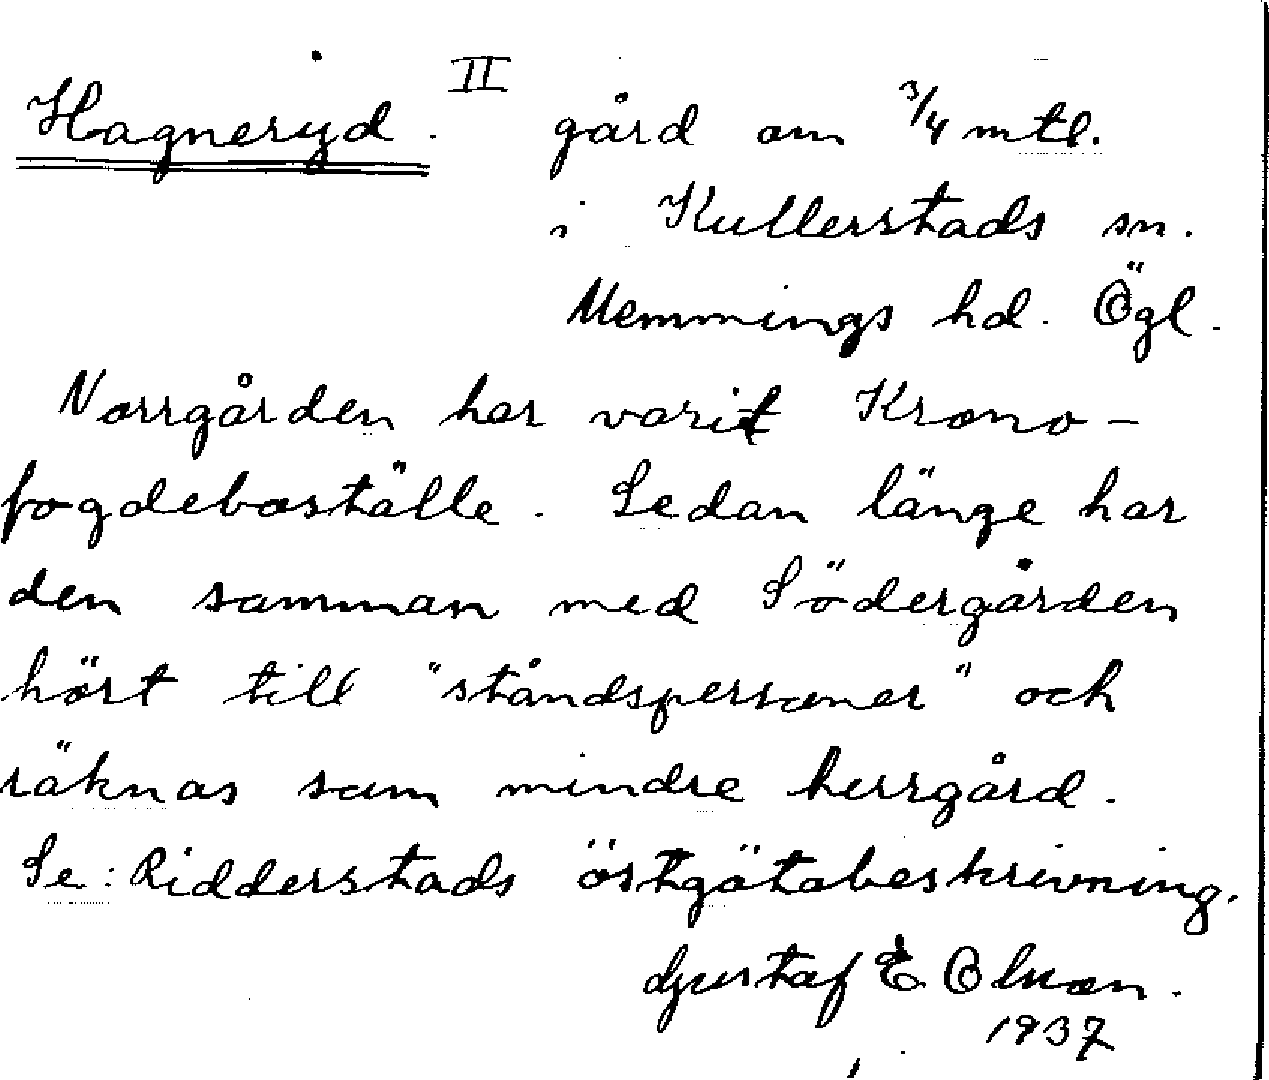 Hagneryd. II gård om 3/4 mtl.
i Kullerstads sn.
Memmings hd. Ögl.
Norrgården har varit Krono-
fogdeboställe. Sedan länge har
den samman med Södergården
hört till "ståndspersoner" och
räknas som mindre herrgård.
Se: Ridderstads östgötabeskrivning.
Gustaf E. Olsson.
1937